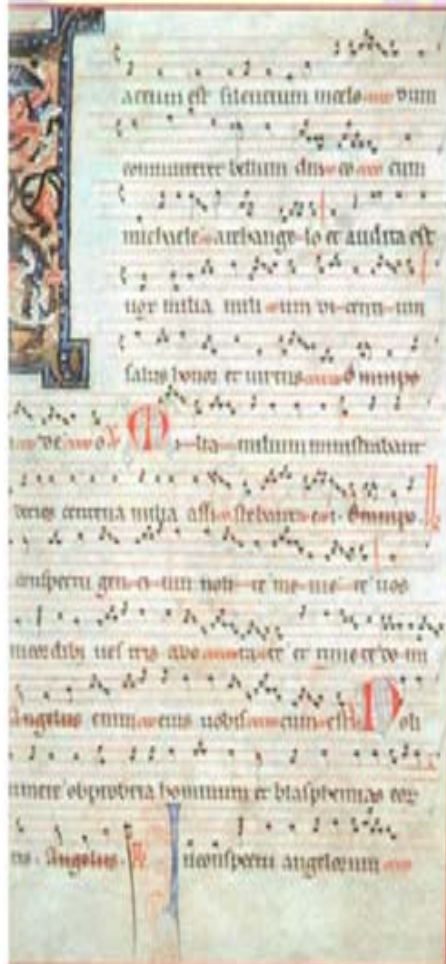 actum est silentium in celo dum
committeret bellum draco cum
michaele archangelo et audita est
vox milia milium dicentium
salus honor et virtus omnipo
Milia milium ministrabant
decies centena milia assistebant ei Omnipo
conspectu gencium nolite metuere vos
cordibus vestris adorate et timete domi
Angelus enim eius vobiscum est Noli
timere obprobria hominum et blasphemias eor
Angelus In conspectu angelorum